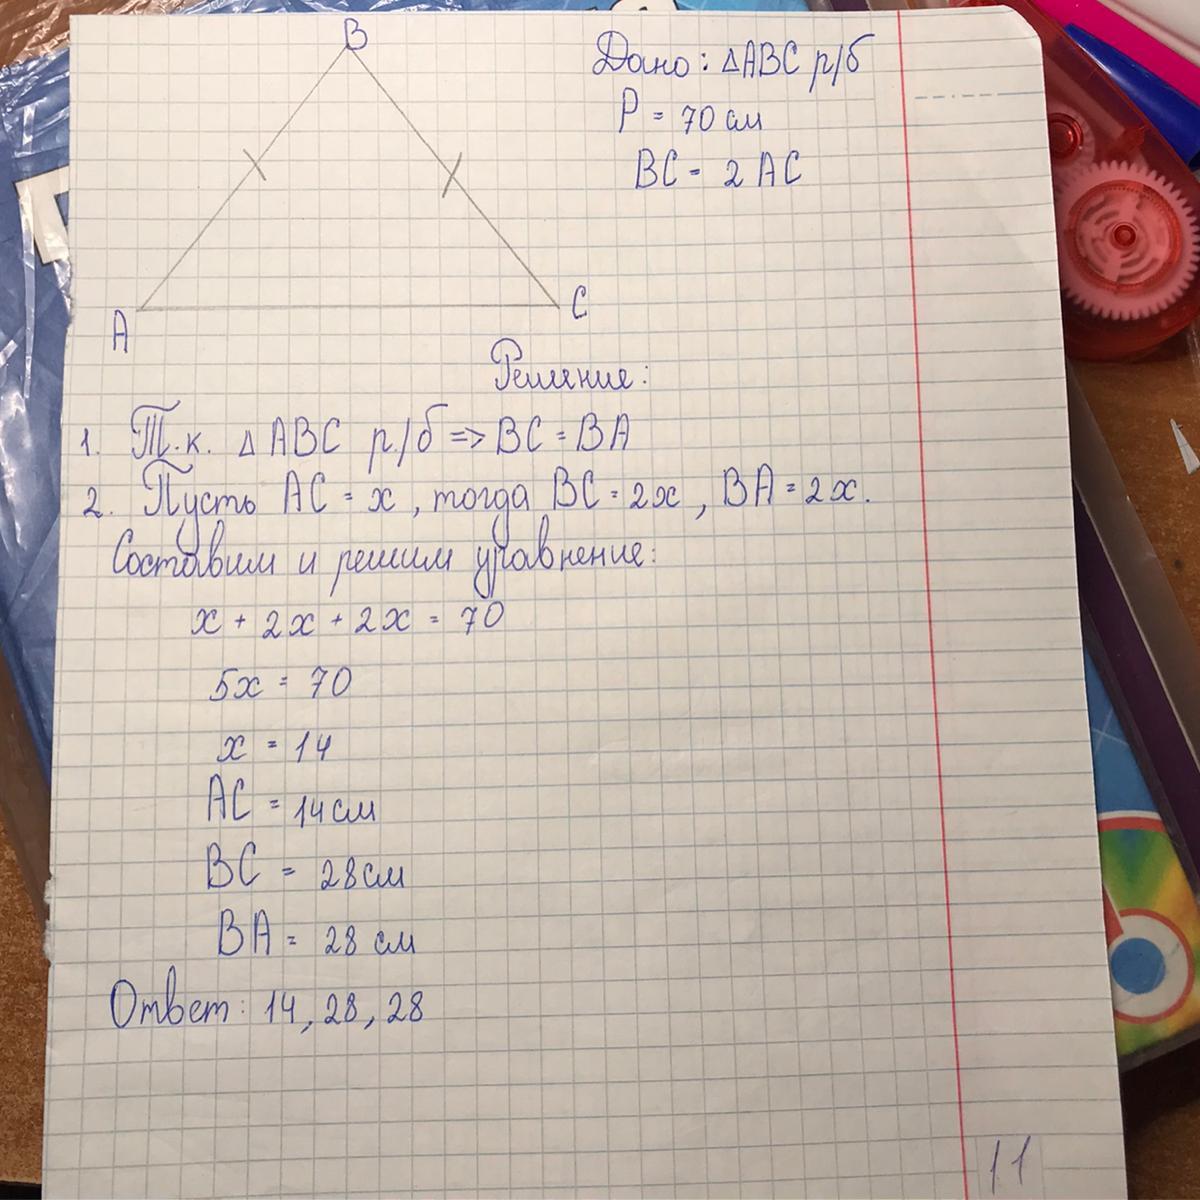 B
Дано: △ABC р/б
P = 70 см
BC = 2 AC
A
C
Решение:
1. Т.к. △ ABC р/б => BC = BA
2. Пусть AC = x, тогда BC = 2x, BA = 2x.
Составим и решим уравнение:
x + 2x + 2x = 70
5x = 70
x = 14
AC = 14 см
BC = 28 см
BA = 28 см
Ответ: 14, 28, 28
11